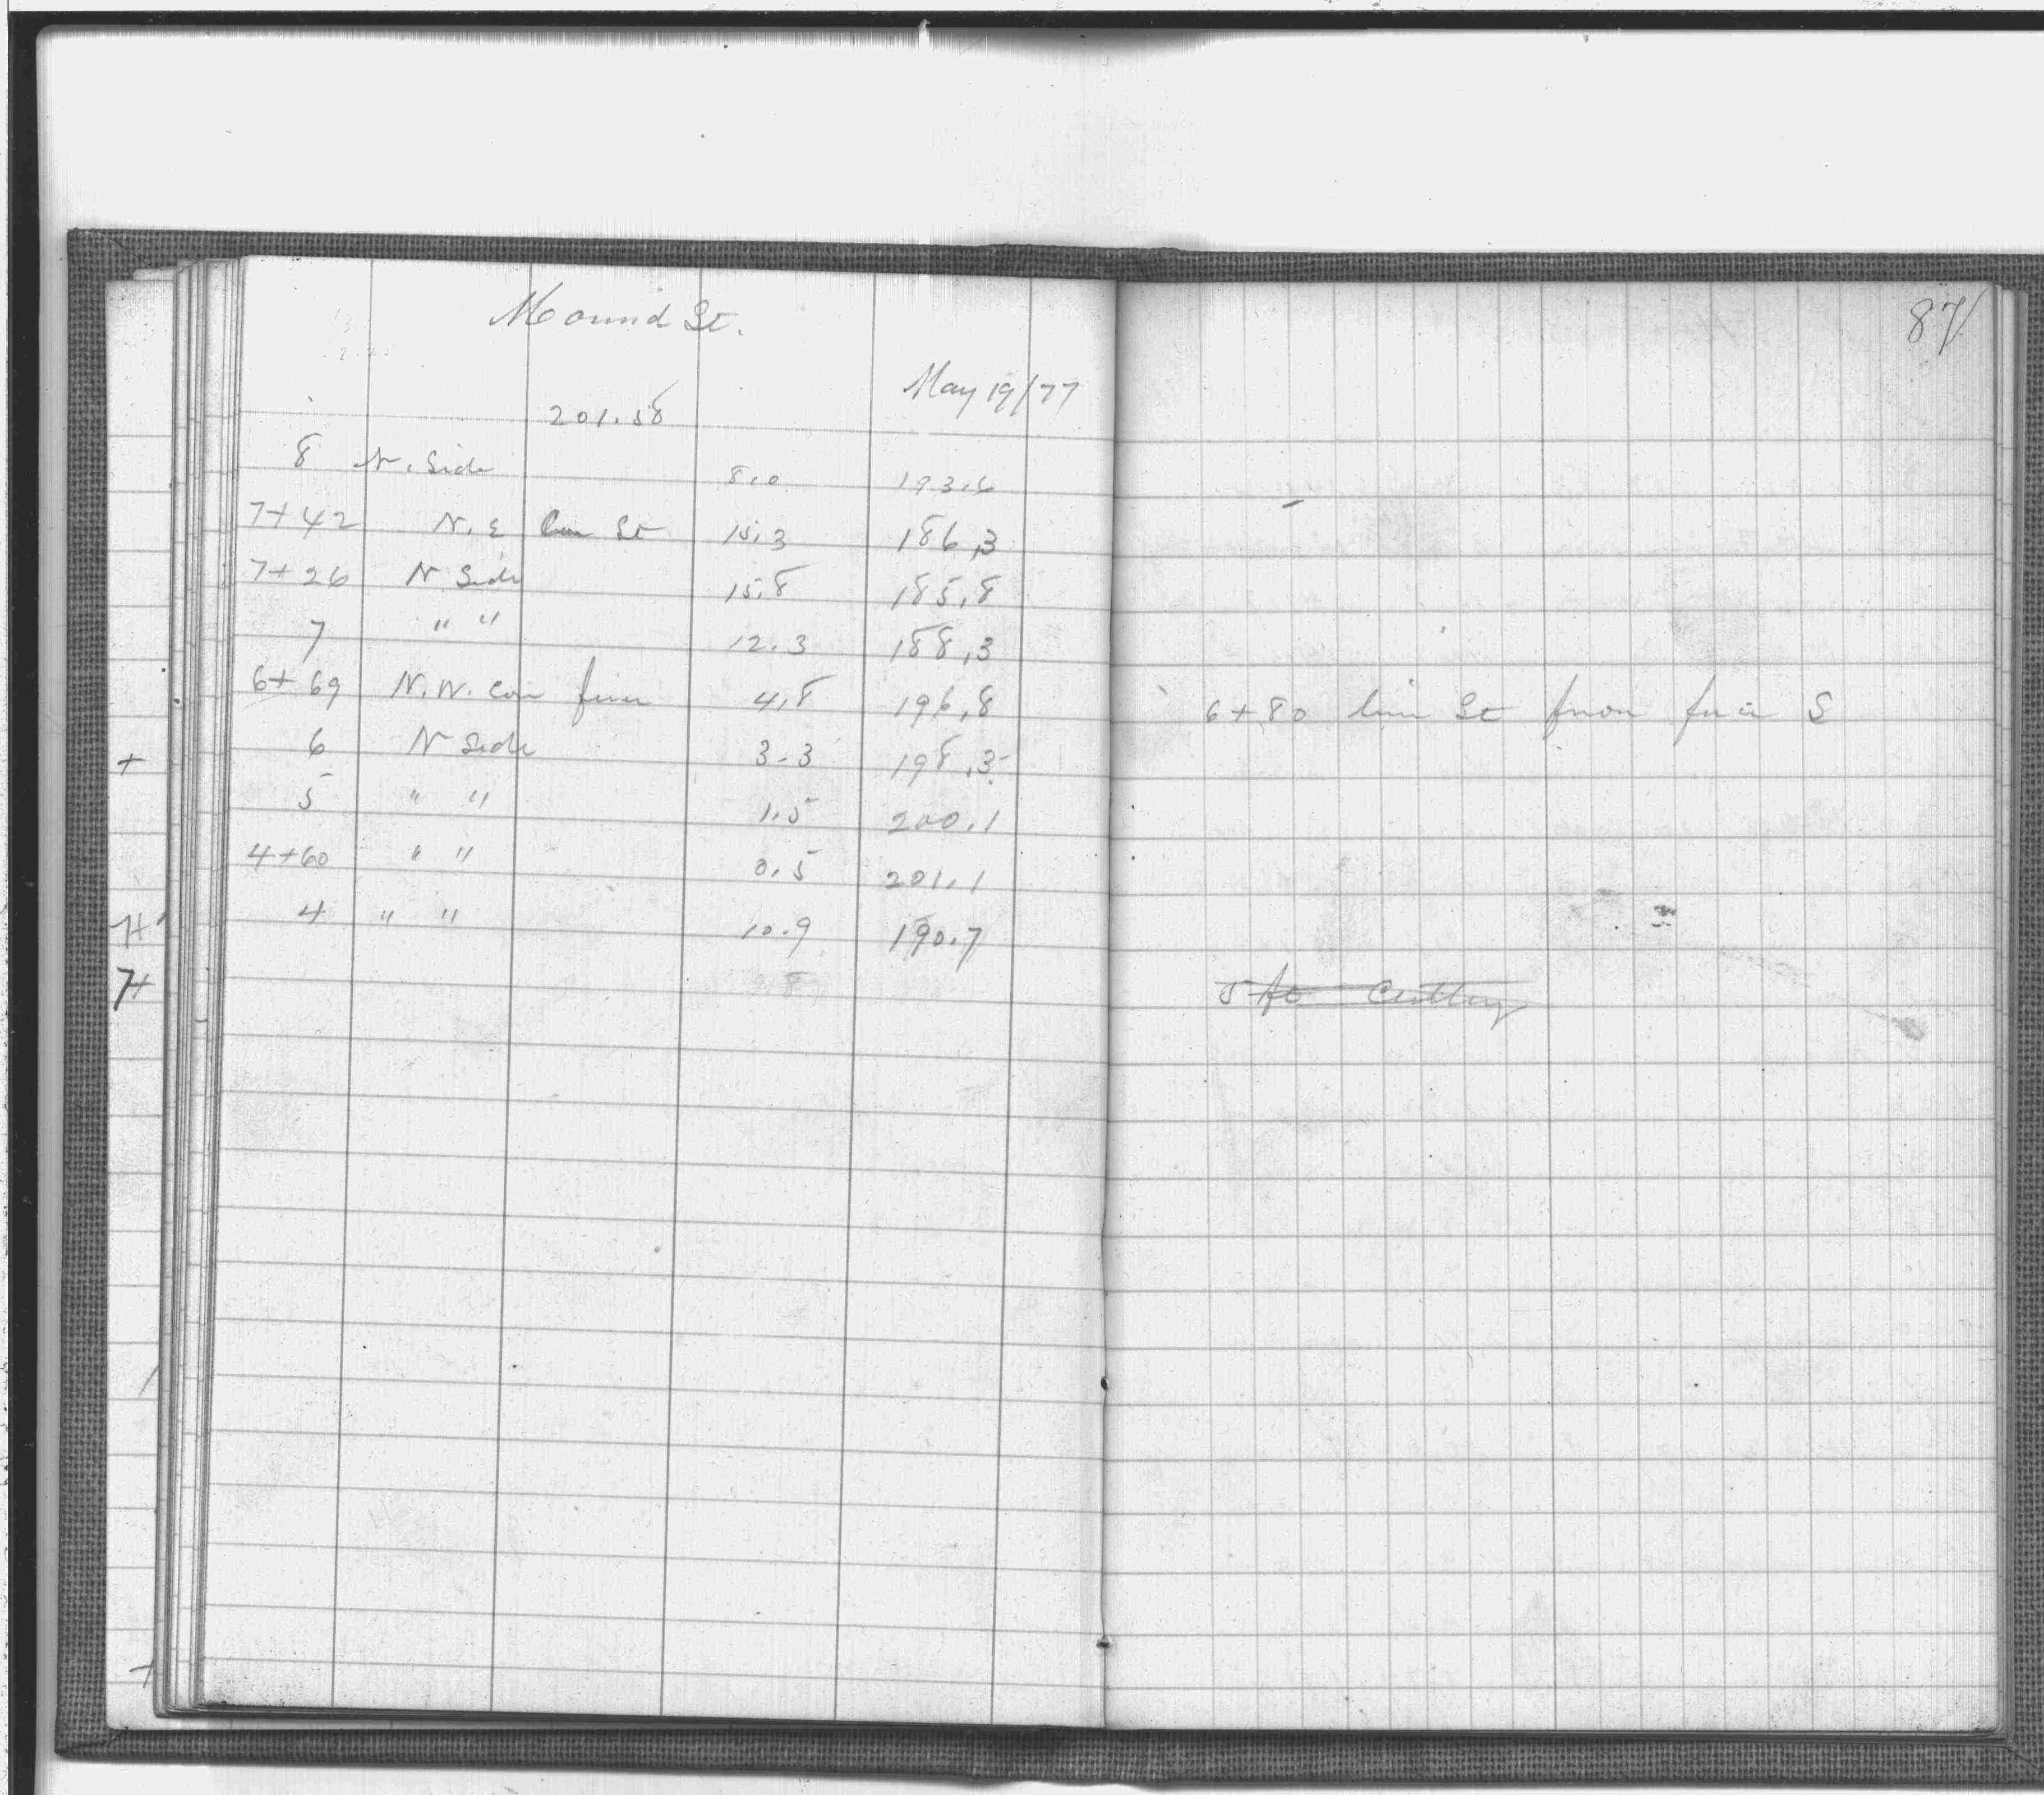 Mound St.
May 19/77
201.58
8 N. Side 8.0 193.6
7+42 N.E Line St 15.3 186.3
7+26 N Side 15.8 185.8
7 " " 12.3 188.3
6+69 N.W. Cor 4.8 196.8
6 N Side 3.3 198.3
5 " " 1.5 200.1
4+60 " " 0.5 201.1
4 " " 10.9 190.7
9.8
+
7+
7+
87
6+80 line St from S
5 ft Cutting